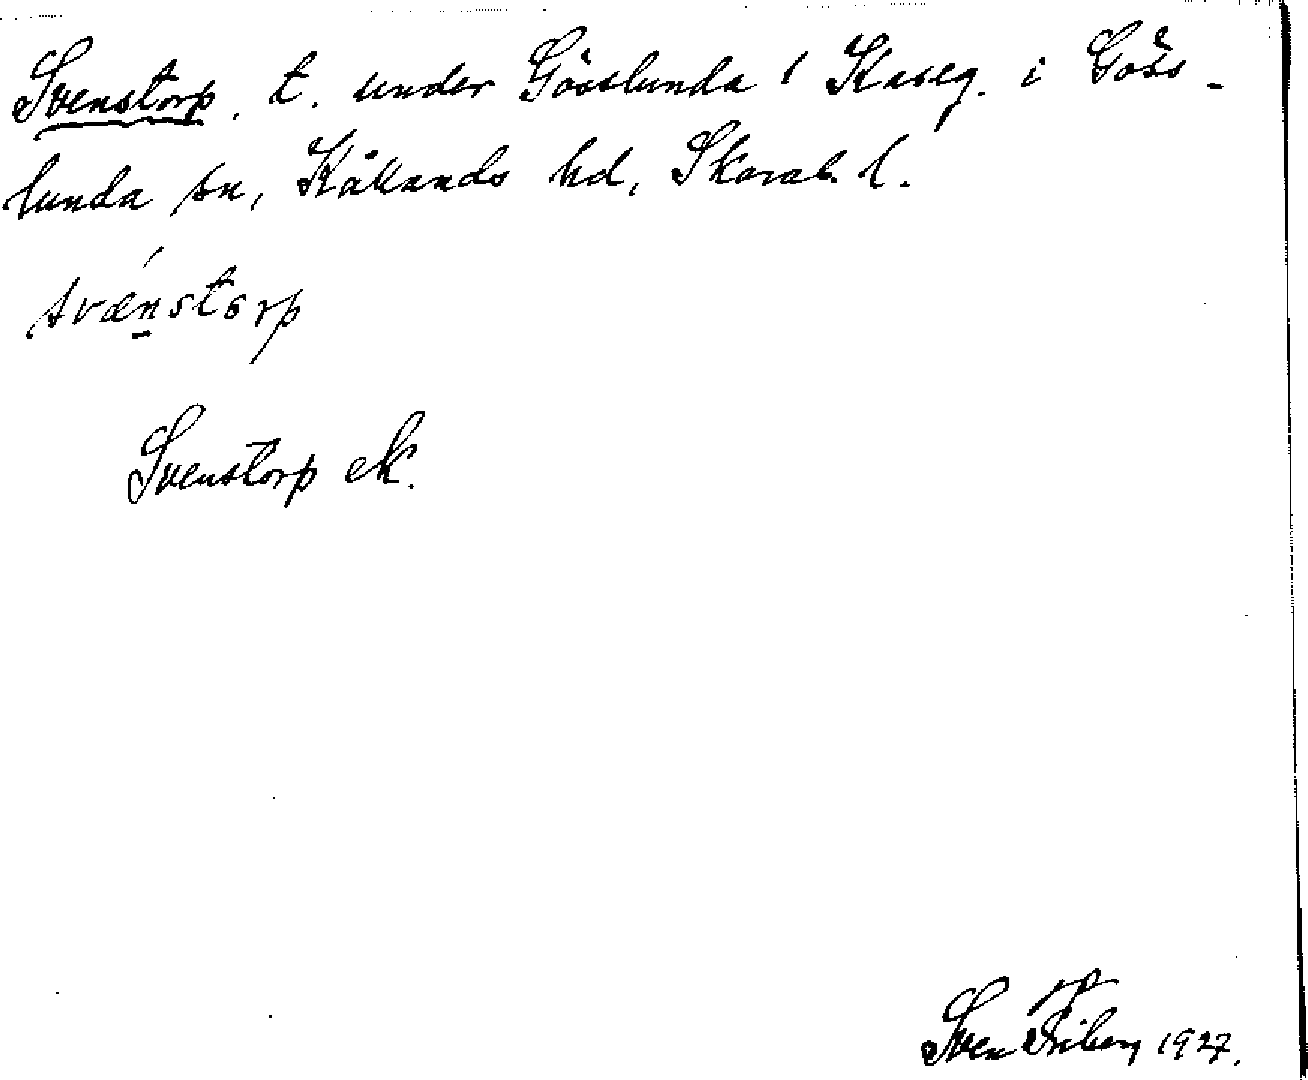 Svenstorp, t. under Gösslunda 1 Kaseg. i Göss-
lunda sn, Kållands hd, Skarab. l.
svænstorp
Svenstorp ek.
Sven Friberg 1927.